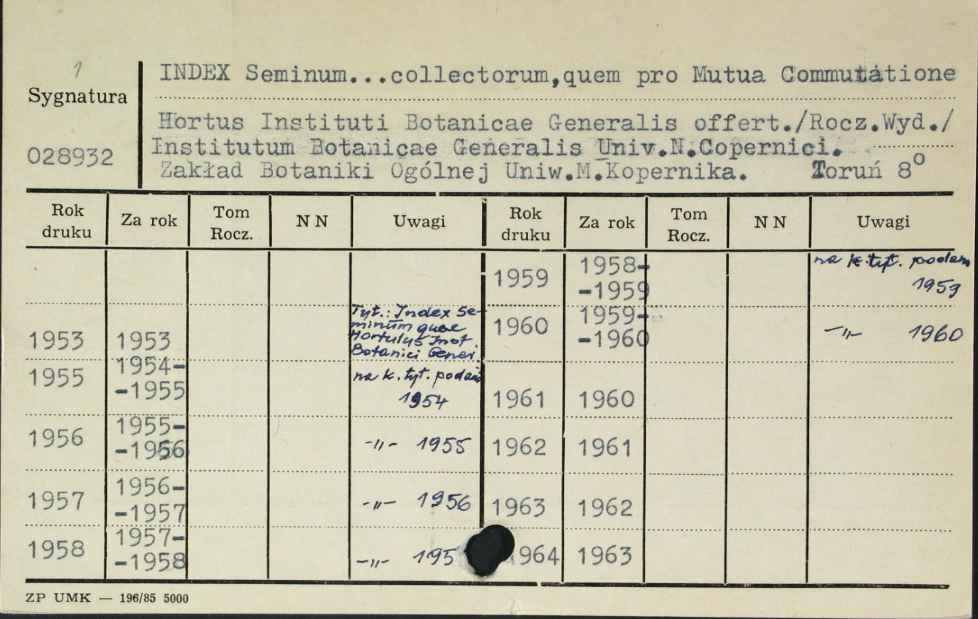 1
INDEX Seminum...collectorum,quem pro Mutua Commutatione
Sygnatura
Hortus Instituti Botanicae Generalis offert./Rocz.Wyd./
028932
Institutum Botanicae Generalis Univ.N.Copernici.
Zakład Botaniki Ogólnej Uniw.M.Kopernika. Toruń 8o
Rok druku Za rok Tom Rocz. N N Uwagi Rok druku Za rok Tom Rocz. N N Uwagi
1959 1958-
-1959 na k. tyt. podano
1959
1953 1953 Tyt.: Index Se-
minum quae
Hortulus Inst
Botanici Gener.
1960 1959-
-1960 -„- 1960
1955 1954-
-1955 na k. tyt. podano
1954
1961 1960
1956 1955-
-1956 -„- 1955
1962 1961
1957 1956-
-1957 -„- 1956
1963 1962
1958 1957-
-1958 -„- 195
1964 1963
ZP UMK — 196/85 5000